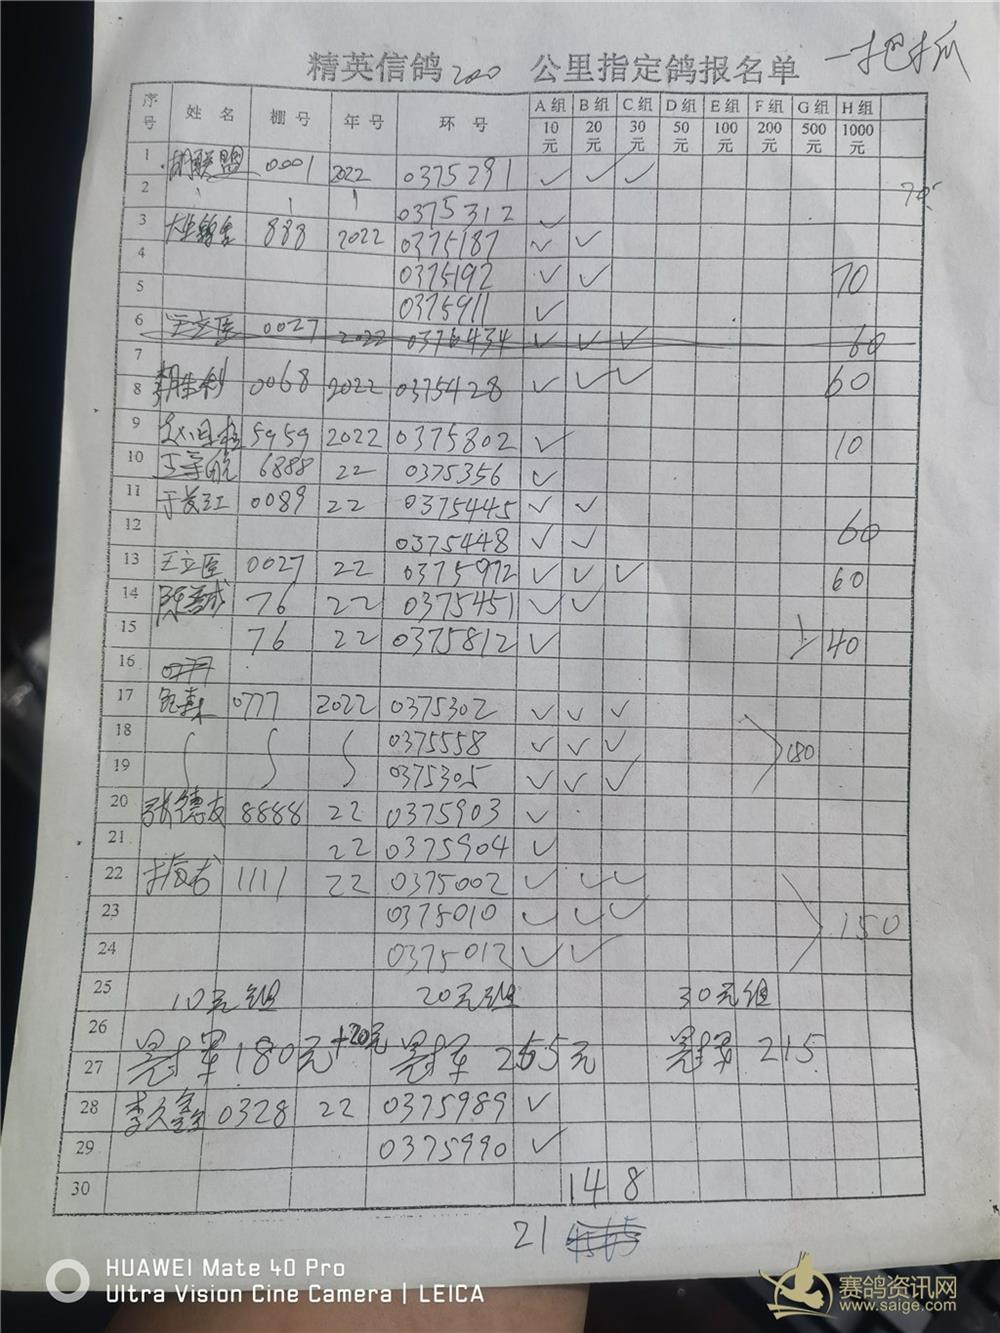 精英信鸽 200 公里指定鸽报名单 一把抓
序号 姓 名 棚 号 年 号 环 号 A 组 10 元 B 组 20 元 C 组 30 元 D 组 50 元 E 组 100 元 F 组 200 元 G 组 500 元 H 组 1000 元
1 胡联盟 0001 2022 0375291 ✓ ✓ ✓
2 0375312 ✓ 70
3 888 2022 0375187 ✓ ✓
4 0375192 ✓ ✓ 70
5 0375911 ✓
6 王立医 0027 2022 0376434 ✓ ✓ ✓ 60
7
8 0068 2022 0375428 ✓ ✓ ✓ 60
9 5959 2022 0375802 ✓ 10
10 6888 22 0375356 ✓
11 0089 22 0375445 ✓ ✓
12 0375448 ✓ ✓ 60
13 王立医 0027 22 0375972 ✓ ✓ ✓ 60
14 76 22 0375451 ✓ ✓
15 76 22 0375812 ✓ 40
16 0777
17 0777 2022 0375302 ✓ ✓ ✓
18 0375558 ✓ ✓ ✓ 180
19 0375305 ✓ ✓ ✓
20 张德友 8888 22 0375903 ✓
21 22 0375904 ✓
22 1111 22 0375002 ✓ ✓ ✓
23 0375010 ✓ ✓ ✓ 150
24 0375012 ✓ ✓
25 10元组 20元组 30元组
26
27 冠军180元+20元 冠军255元 冠军 215
28 李久鑫 0328 22 0375989 ✓
29 0375990 ✓
30 14 8
21
HUAWEI Mate 40 Pro
Ultra Vision Cine Camera | LEICA
赛鸽资讯网
www.saige.com